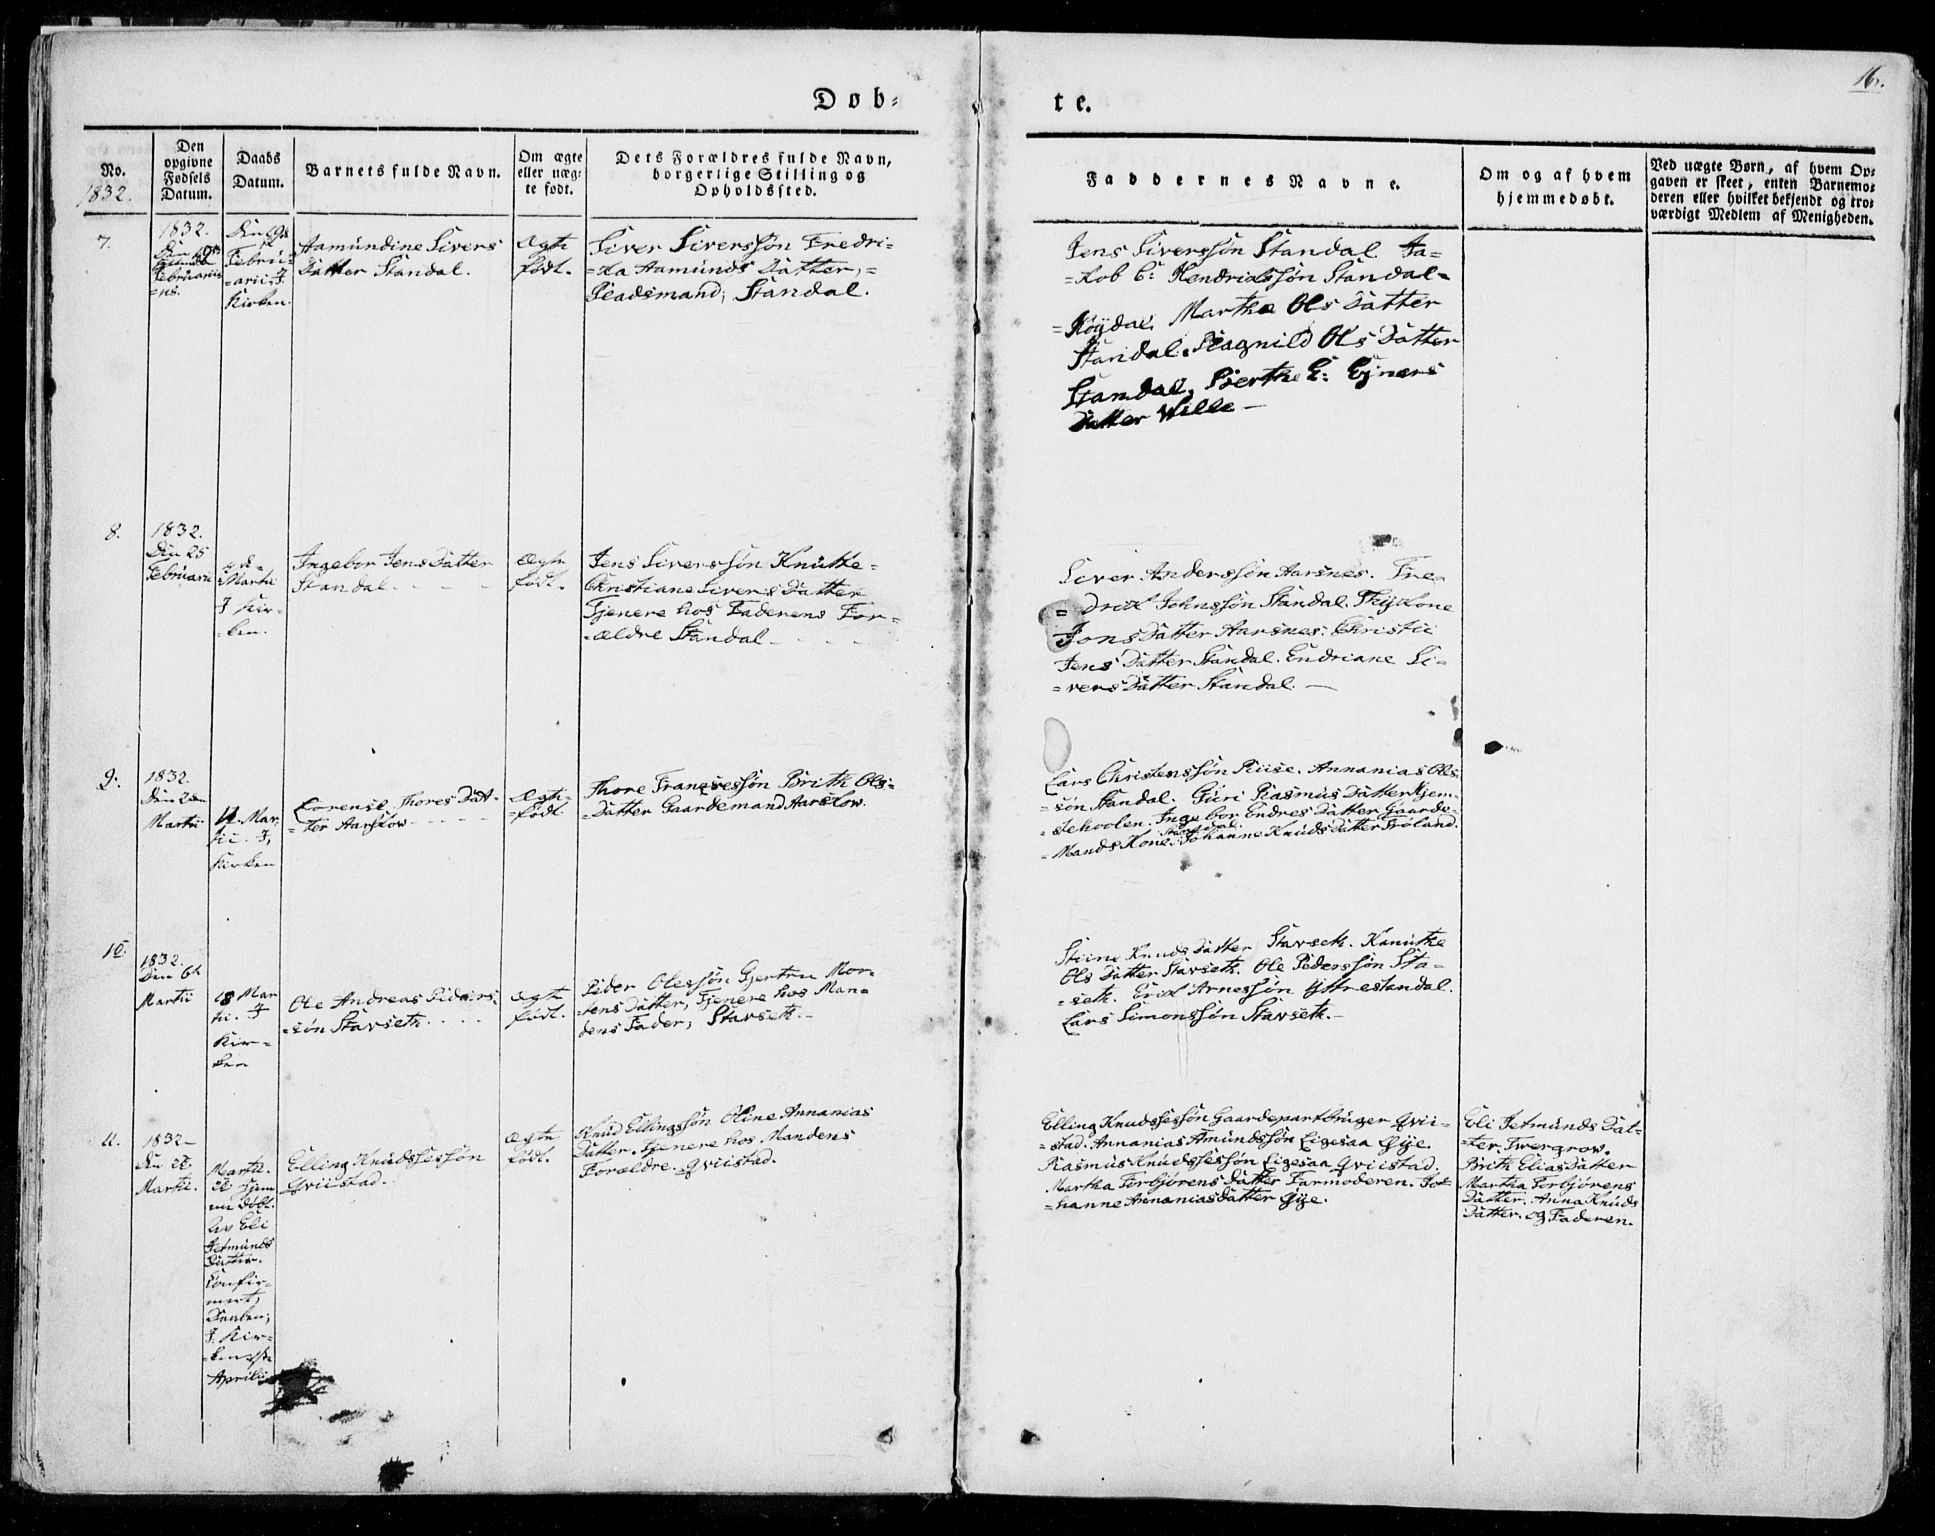 16.
Døb-
te.
No.
1832.
Den
opgivne
Fødsels
Datum.
Daabs
Datum.
Barnets fulde Navn.
Om ægte
eller uæg-
te født.
Dets Forældres fulde Navn,
borgerlige Stilling og
Opholdssted.
Faddernes Navne.
Om og af hvem
hjemmedøbt.
Ved uægte Børn, af hvem Op-
gaven er skeet, enten Barnemo-
deren eller hvilket bekjendt og tro-
værdigt Medlem af Menigheden.
7.
1832.
Februarii
Febru-
=arii. I
Kirken
Aamundine Sivers
Datter Standal.
Ægte
født.
Siver Siversøn Fredri-
=ka Aamunds Datter,=
Pladsmand, Standal.
Jens Siverssøn Standal. Ja-
=kob C: Hendrikssøn Standal=
=Køydal. Martha Ols Datter
Standal. Ragnild Ols Datter
Standal, Bierthe E: Ejners
Datter Wille—
8.
1832.
Den 25
Februarii
Martii
I Kir-
=ken.
Ingebor Jens Datter
Standal.
Ægte
født.
Jens Siverssøn Knuthe-
Christiane Sivers Datter
Tjenere hos Faderens For-
=ældre Standal
Siver Anderssøn Aarsnes. Fre-
=drik Johnssøn Standal.
Jons Datter Aarsnes. Christii
Jens Datter Standal. Endriane Si-
=vers Datter Standal.—
9.
1832.
Martii
11. Mar-
tii. I,
Kirken
Lorense Thores Dat-
=ter Aarskow
Ægte
=født
Thore Brith Ols-
=Datter Gaardemand Aarskow.
Lars Christenssøn Riise. Annanias Ols
=søn Standal. Guri Rasmus Datter Kjem-
=Schoolen. Ingebor Endres Datter Gaarde-
=Mands Kone. Johanne Knuds Datter Frøland.
Standal.
10.
1832.
Den 6te
Martii
18 Mar
tii. I
Kir-
ken
Ole Andreas Peders-
=søn Stavseth.
ægte
født.
Peder Olessøn Gjertru Mor-
=tens Datter, Tjenere hos Man-
dens Fader, Stavseth.-
Stine Knuds Datter Stavseth. Kanuthe
Ols Datter Stavseth. Ole Pederssøn Sta-
=seth. Erik Arnessøn Yttrestandal.
Lars Simonssøn Stavseth.-
11.
1832—
Martii.
Martii.
Hjem
me døbt.
av Eli
Jetmunds
Datter.
Confir-
mert,
Daaben,
I. Kir-
=ken
Aprilii
Elling Knudssessøn
Qviistad.
ægte
født.
Knud Ellingssøn Oline Annanias
Datter. Tjenere hos Mandens
Forældre. Qviistad.
Elling Knudssessøn Gaardepartbruger Qvii-
=stad. Annanias Amundssøn Ligesaa Øye.
Rasmus Knudssessøn Ligesaa Qviistad.
Martha Torbjørens Datter Farmoderen. Jo-
=hanne Annanias Datter Øye.
Eli Jetmunds Dat-
=ter Twergrow.
Brith Elias Datter
Martha Torbjørens
Datter. Anna Knuds
Datter. og Faderen.